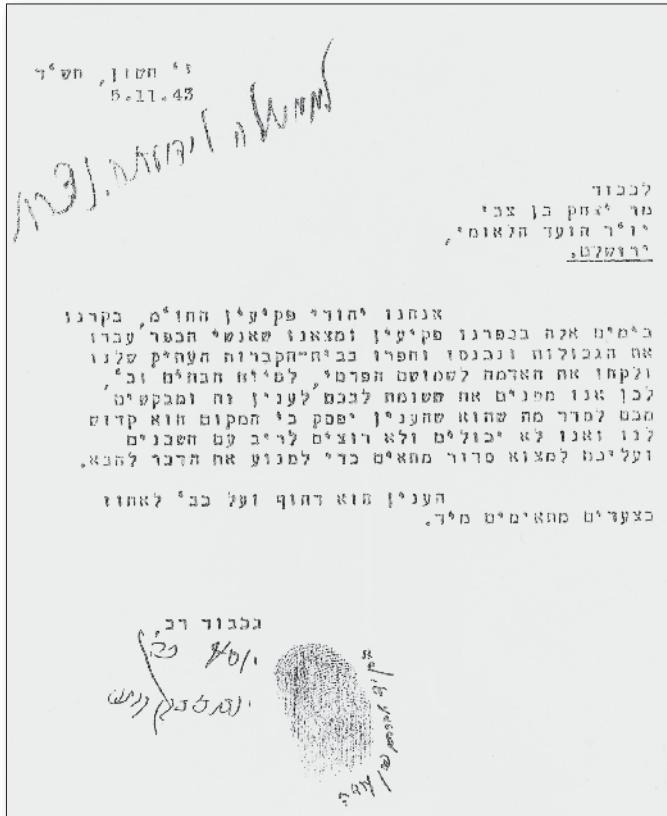 ז' חשון, תש"ד
5.11.43
לממשלה
לכבוד
מר יצחק בן צבי
יו"ר הועד הלאומי,
ירושלים.
אנחנו יהודי פקיעין החו"מ, בקרנו
בימים אלה בכפרנו פקיעין ומצאנו שאנשי הכפר עברו
את הגבולות ונכנסו וחפרו בבית-הקברות העתיק שלנו
ולקחו את האדמה לשמושם הפרטי, לטיוח הבתים וכ',
לכן אנו מפנים את תשומת לבכם לענין זה ומבקשים
מכם לסדר מה שהוא שהענין יפסק כי המקום הוא קדוש
לנו ואנו לא יכולים ולא רוצים לריב עם השכנים
ועליכם למצוא סדור מתאים כדי למנוע את הדבר להבא.
הענין הוא דחוף ועל כב' לאחוז
בצעדים מתאימים מיד.
בכבוד רב,